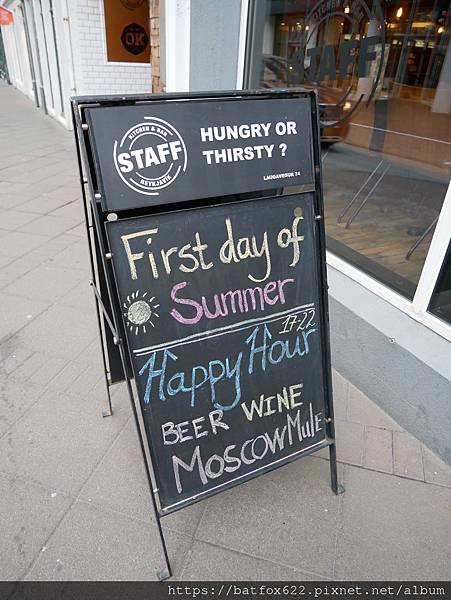 OK
STAFF
KITCHEN & BAR
STAFF
REYKJAVÍK
HUNGRY OR
THIRSTY ?
LAUGAVEGUR 74
First day of
Summer
17-22
Happy Hour
BEER WINE
Moscow Mule
https://batfox622.pixnet.net/album